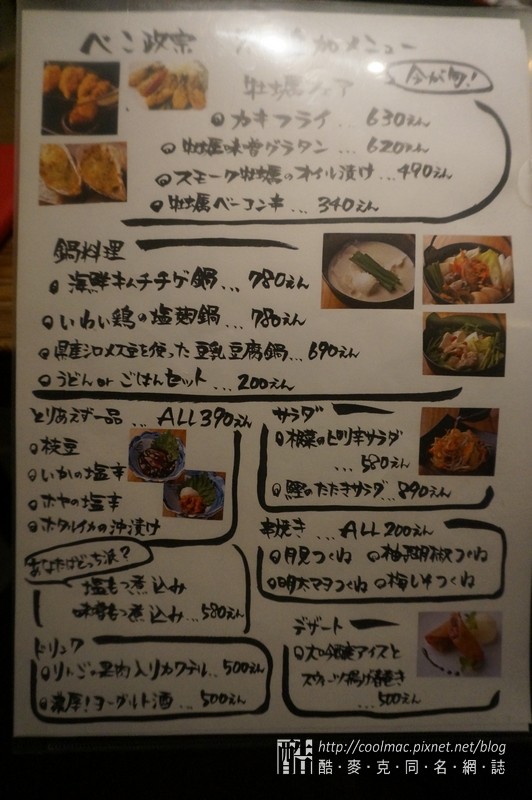 べこ政宗 追加メニュー
牡蠣フェア
今が旬!
カキフライ... 630えん
牡蠣の味噌グラタン... 620えん
スモーク牡蠣のオイル漬け...490えん
牡蠣ベーコン串... 340えん
鍋料理
海鮮キムチチゲ鍋... 780えん
いわい鶏の塩麹鍋... 780えん
県産シロメ大豆を使った豆乳豆腐鍋...690えん
うどんorごはんセット...200えん
とりあえず一品... ALL390えん
枝豆
いかの塩辛
ホヤの塩辛
ホタルイカの沖漬け
あなたはどっち派?
塩もつ煮込み
味噌もつ煮込み...580えん
ドリンク
りんごの果肉入りカクテル...500えん
濃厚!ヨーグルト酒... 500えん
サラダ
根菜のピリ辛サラダ
...580えん
鰹のたたきサラダ...890えん
串焼き... ALL200えん
月見つくね 柚子胡椒つくね
明太マヨつくね 梅しそつくね
デザート
スウィーツ揚げ春巻き
...500えん
http://coolmac.pixnet.net/blog
酷‧麥‧克‧同‧名‧網‧誌